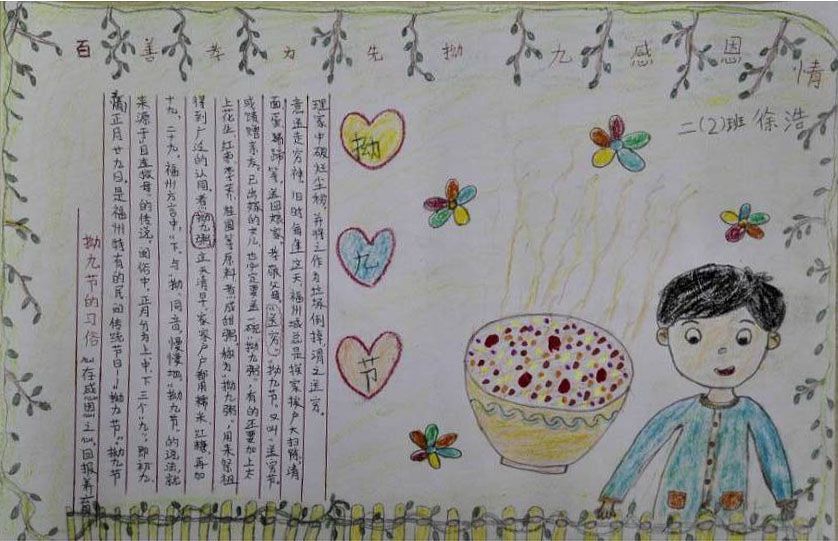 百善孝为先拗九感恩情
二(2)班 徐浩
拗
九
节
拗九节的习俗
心在感恩之心回报养育
正月廿九日,是福州特有的民间传统节日——“拗九节”。拗九节
来源于目连救母的传说。闽俗中,正月分为上中下三个“九”,即初九
十九、二十九。福州方言中,“下”与“拗”同音,慢慢地,“拗九节”的说法就
得到广泛的认同。有“拗九粥”这天清早,家家户户都用糯米、红糖,再加
上花生、红枣、荸荠、桂圆等原料煮成甜粥,称为“拗九粥”,用来祭祖
或馈赠亲友。已出嫁的女儿,也必定要送一碗“拗九粥”,有的还要加上太
面蛋、蹄膀等,送回娘家,孝敬父母。(送穷)“拗九节”又叫“送穷节
意送走穷神。旧时每逢这天,福州城总是挨家挨户大扫除,清
理家中破烂尘物,并将之作为垃圾倒掉,谓之送穷。